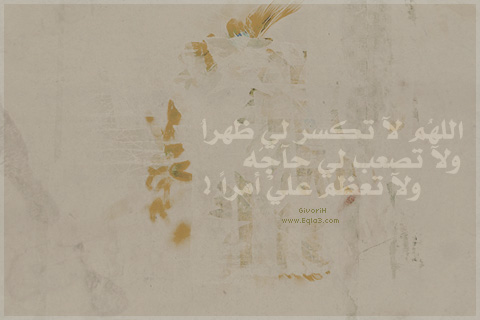 اللهُم لآ تكسر لي ظهراً
ولآ تصعب لي حآجه
ولآ تعظم علي أمراً !
GivoriH
www.Eqla3.com